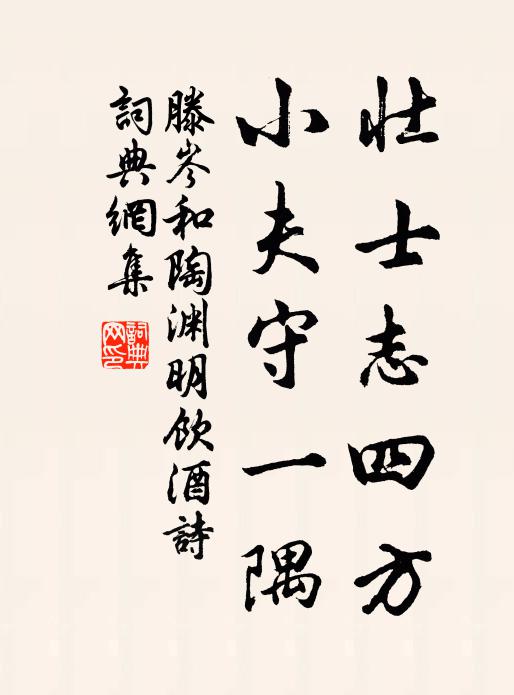 壮士志四方
小夫守一隅
滕岑和陶渊明饮酒詩
詞典網集
詞典
网印